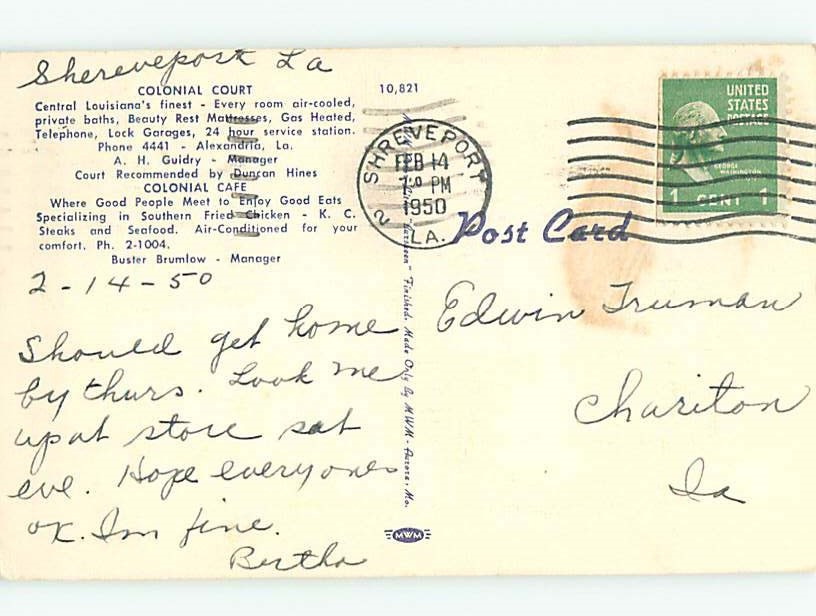 Shereveport La
COLONIAL COURT
Central Louisiana's finest - Every room air-cooled,
private baths, Beauty Rest Mattresses, Gas Heated,
Telephone, Lock Garages, 24 hour service station.
Phone 4441 - Alexandria, La.
A. H. Guidry - Manager
Court Recommended by Duncan Hines
COLONIAL CAFE
Where Good People Meet to Enjoy Good Eats
Specializing in Southern Fried Chicken - K. C.
Steaks and Seafood. Air-Conditioned for your
comfort. Ph. 2-1004.
Buster Brumlow - Manager
2-14-50
Should get home
by thurs. Look me
up at store sat
eve. Hope everyones
ok. Im fine.
Bertha
10,821
SHREVEPORT
FEB 14
PM
1950
LA.
2
UNITED
STATES
POSTAGE
GEORGE
WASHINGTON
1 CENT 1
Post Card
Finished. Made Only By MWM - Aurora, Mo.
MWM
Edwin Truman
Chariton
Ia